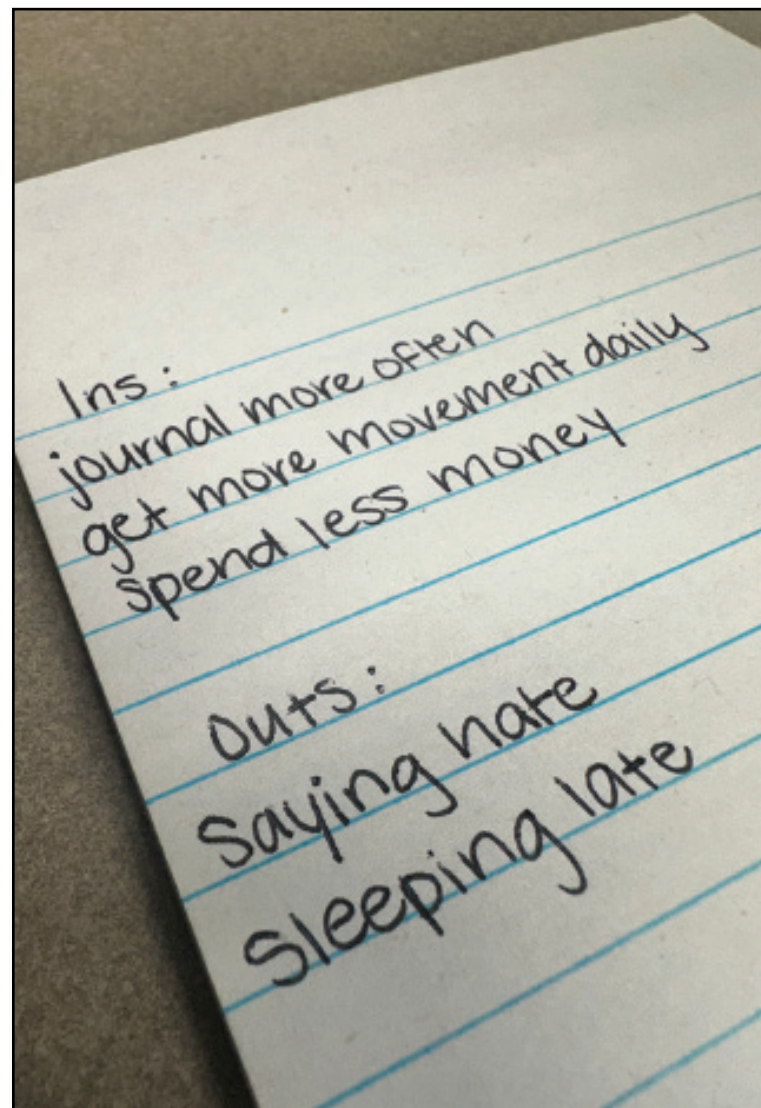 Ins:
journal more often
get more movement daily
spend less money
Outs:
Saying hate
Sleeping late